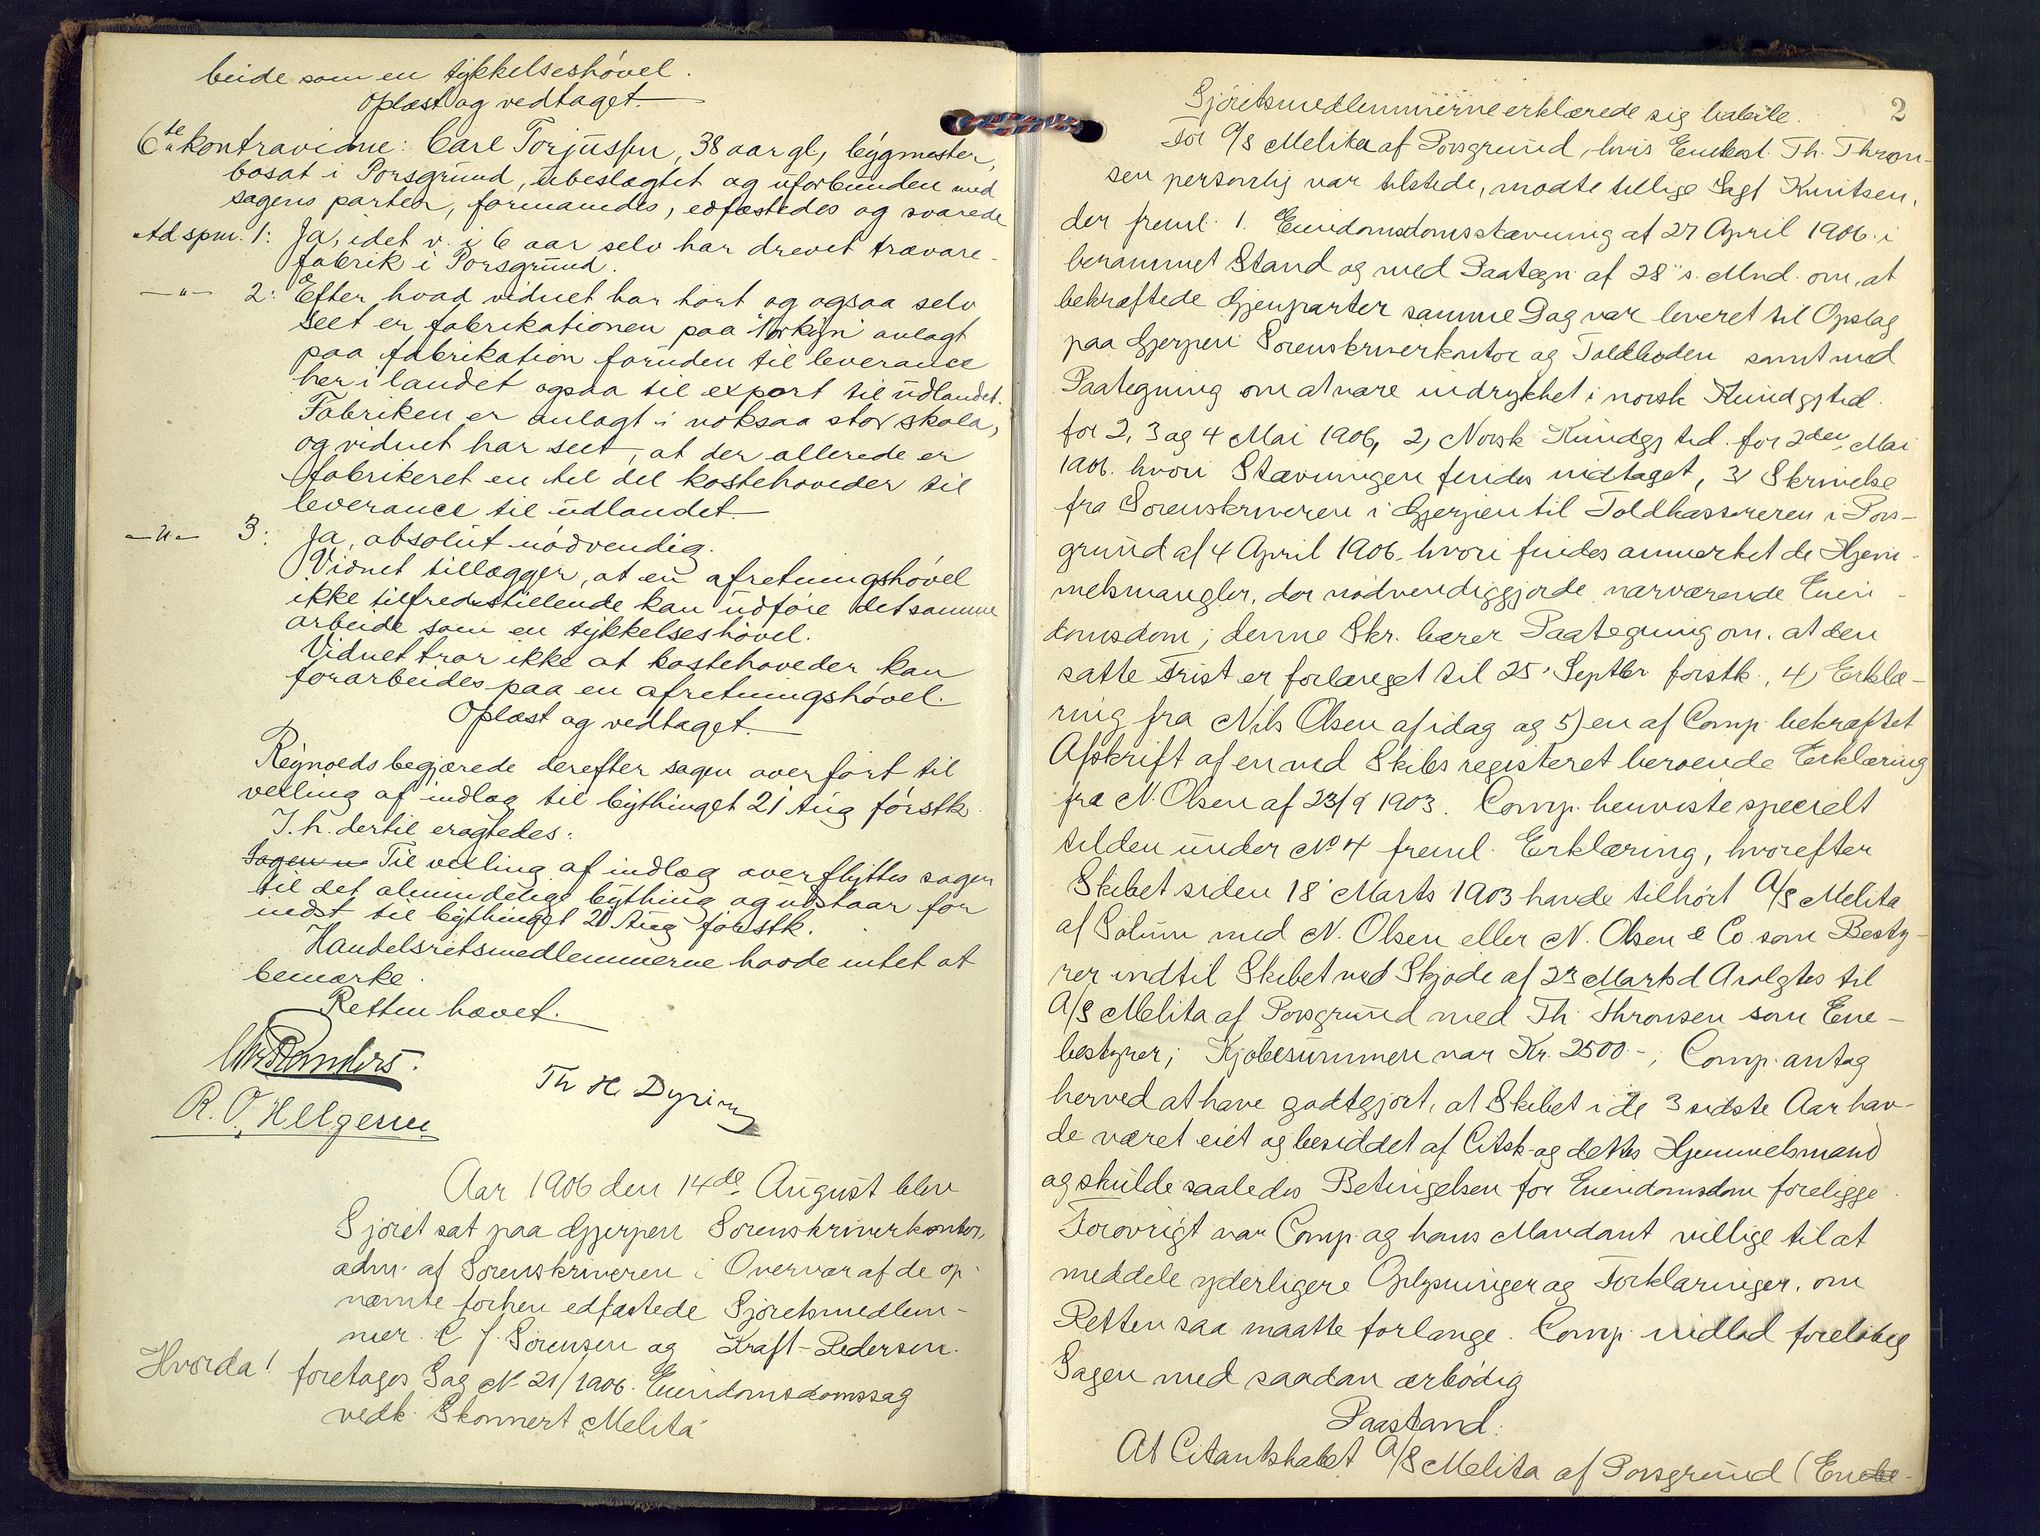 beide som en tykkelseshövel.
Oplæst og vedtaget.
6te kontravidne: Carl Torjussen, 38 aar gl, bygmester,
bosat i Porsgrund, ubeslægtet og uforbunden med
sagens parter, formanedes, edfæstedes og svarede
Ad spm. 1: Ja, idet v. i 6 aar selv har drevet trævare-
fabrik i Porsgrund.
—"— 2: Efter hvad vidnet har hört og ogsaa selv
seet er fabrikationen paa anlagt
paa fabrikation foruden til leverance
her i landet ogsaa til export til udlandet.
Fabriken er anlagt i noksaa stor skala,
og vidnet har seet, at der allerede er
fabrikeret en hel del kostehoveder til
leverance til udlandet.
—"— 3: Ja, absolut nödvendig.
Vidnet tillægger, at en afretningshövel
ikke tilfredsstillende kan udföre det samme
arbeide som en tykkelseshövel.
Vidnet tror ikke at kostehoveder kan
forarbeides paa en afretningshövel.
Oplæst og vedtaget.
Reynolds begjærede derefter sagen overfört til
vexling af indlæg til bythinget 21 Aug förstk.
I. h. dertil eragtedes:
Sagen u Til vexling af indlæg overflyttes sagen
til det almindelige bything og udstaar for
indst til bythinget 21 Aug förstk.
Handelsretsmedlemmerne havde intet at
bemærke.
Retten hævet.
R. O. Helgesen
Th H Dyring
Aar 1906 den 14de August blev
Sjöret sat paa Gjerpen Sorenskriverkontor,
adm. af Sorenskriveren i Overvær af de op-
nævnte forhen edfæstede Sjöretsmedlem-
mer C J. Sörensen og Kraft-Pedersen.
Hvorda! foretoges Sag No 21/1906. Eiendomsdomssag
vedk. Skonnert "Melita"
2
Sjöretsmedlemmerne erklærede sig habile.
For A/S Melita af Porsgrund, hvis Enebest. Th. Thron-
sen personlig var tilstede, mödte tillige Sagf Knutsen,
der freml. 1. Eiendomsdomsstævning af 27 April 1906 i
berammet Stand og med Paategn. af 28 s. Mnd. om, at
bekræftede Gjenparter samme Dag var leveret til Opslag
paa Gjerpen Sorenskriverkontor og Toldboden samt med
Paategning om at være indrykket i norsk Kundgj tid.
for 2, 3 og 4 Mai 1906, 2, Norsk Kundgj tid. for 2den Mai
1906. hvori Stævningen findes indtaget, 3, Skrivelse
fra Sorenskriveren i Gjerpen til Toldkassereren i Pors-
grund af 4 April 1906. hvori findes anmerket de Hjem-
melsmangler, der nödvendiggjorde nærværende Eien-
domsdom; denne Skr. bærer Paategning om, at den
satte Frist er forlænget til 25. Septbr. förstk., 4, Erklæ-
ring fra Nils Olsen af idag og 5) en af Comp. bekræftet
Afskrift af en ved Skibsregisteret beroende Erklæring
fra N. Olsen af 23/9 1903. Comp. henviste specielt
til den under No 4 freml. Erklæring, hvorefter
Skibet siden 18 Marts 1903 havde tilhört A/S Melita
af Solum med N. Olsen eller N. Olsen & Co som Besty-
rer indtil Skibet ved Skjöde af 23 Marts d A solgtes til
A/S Melita af Porsgrund med Th. Thronsen som Ene-
bestyrer; Kjöbesummen var Kr. 2500-; Comp. antog
herved at have godtgjort, at Skibet i de 3 sidste Aar hav-
de været eiet og besiddet af Citsk. og dettes Hjemmelsmand
og skulde saaledes Betingelsen for Eiendomsdom foreligge
Forövrigt var Comp. og hans Mandant villige til at
meddele yderligere Oplysninger og Forklaringer, om
Retten saa maatte forlange. Comp. indlod forelöbig
Sagen med saadan ærbödig
Paastand:
At Citantskabet A/S Melita af Porsgrund (Enebe-